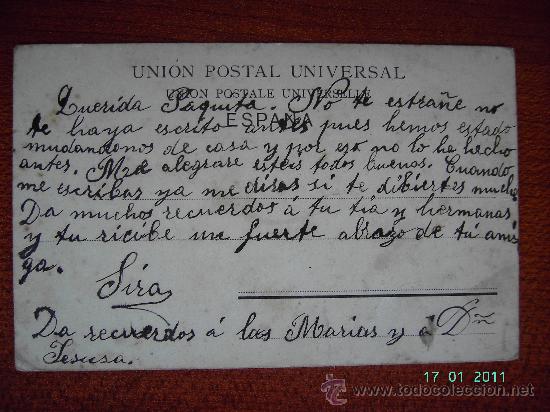 UNIÓN POSTAL UNIVERSAL
UNION POSTALE UNIVERSELLE
ESPAÑA
Querida Paquita. No te estrañe no
te haya escrito antes pues hemos estado
mudandonos de casa y por eso no lo he hecho
antes. Me alegrare esteis todos buenos. Cuando
me escribas ya me diras si te dibiertes mucho.
Da muchos recuerdos á tu tia y hermanas
y tu ricibe un fuerte abrazo de tú ami-
ga.
Sira
Da recuerdos á las Marias y á Dª
Jesusa.
17 01 2011
www.todocoleccion.net